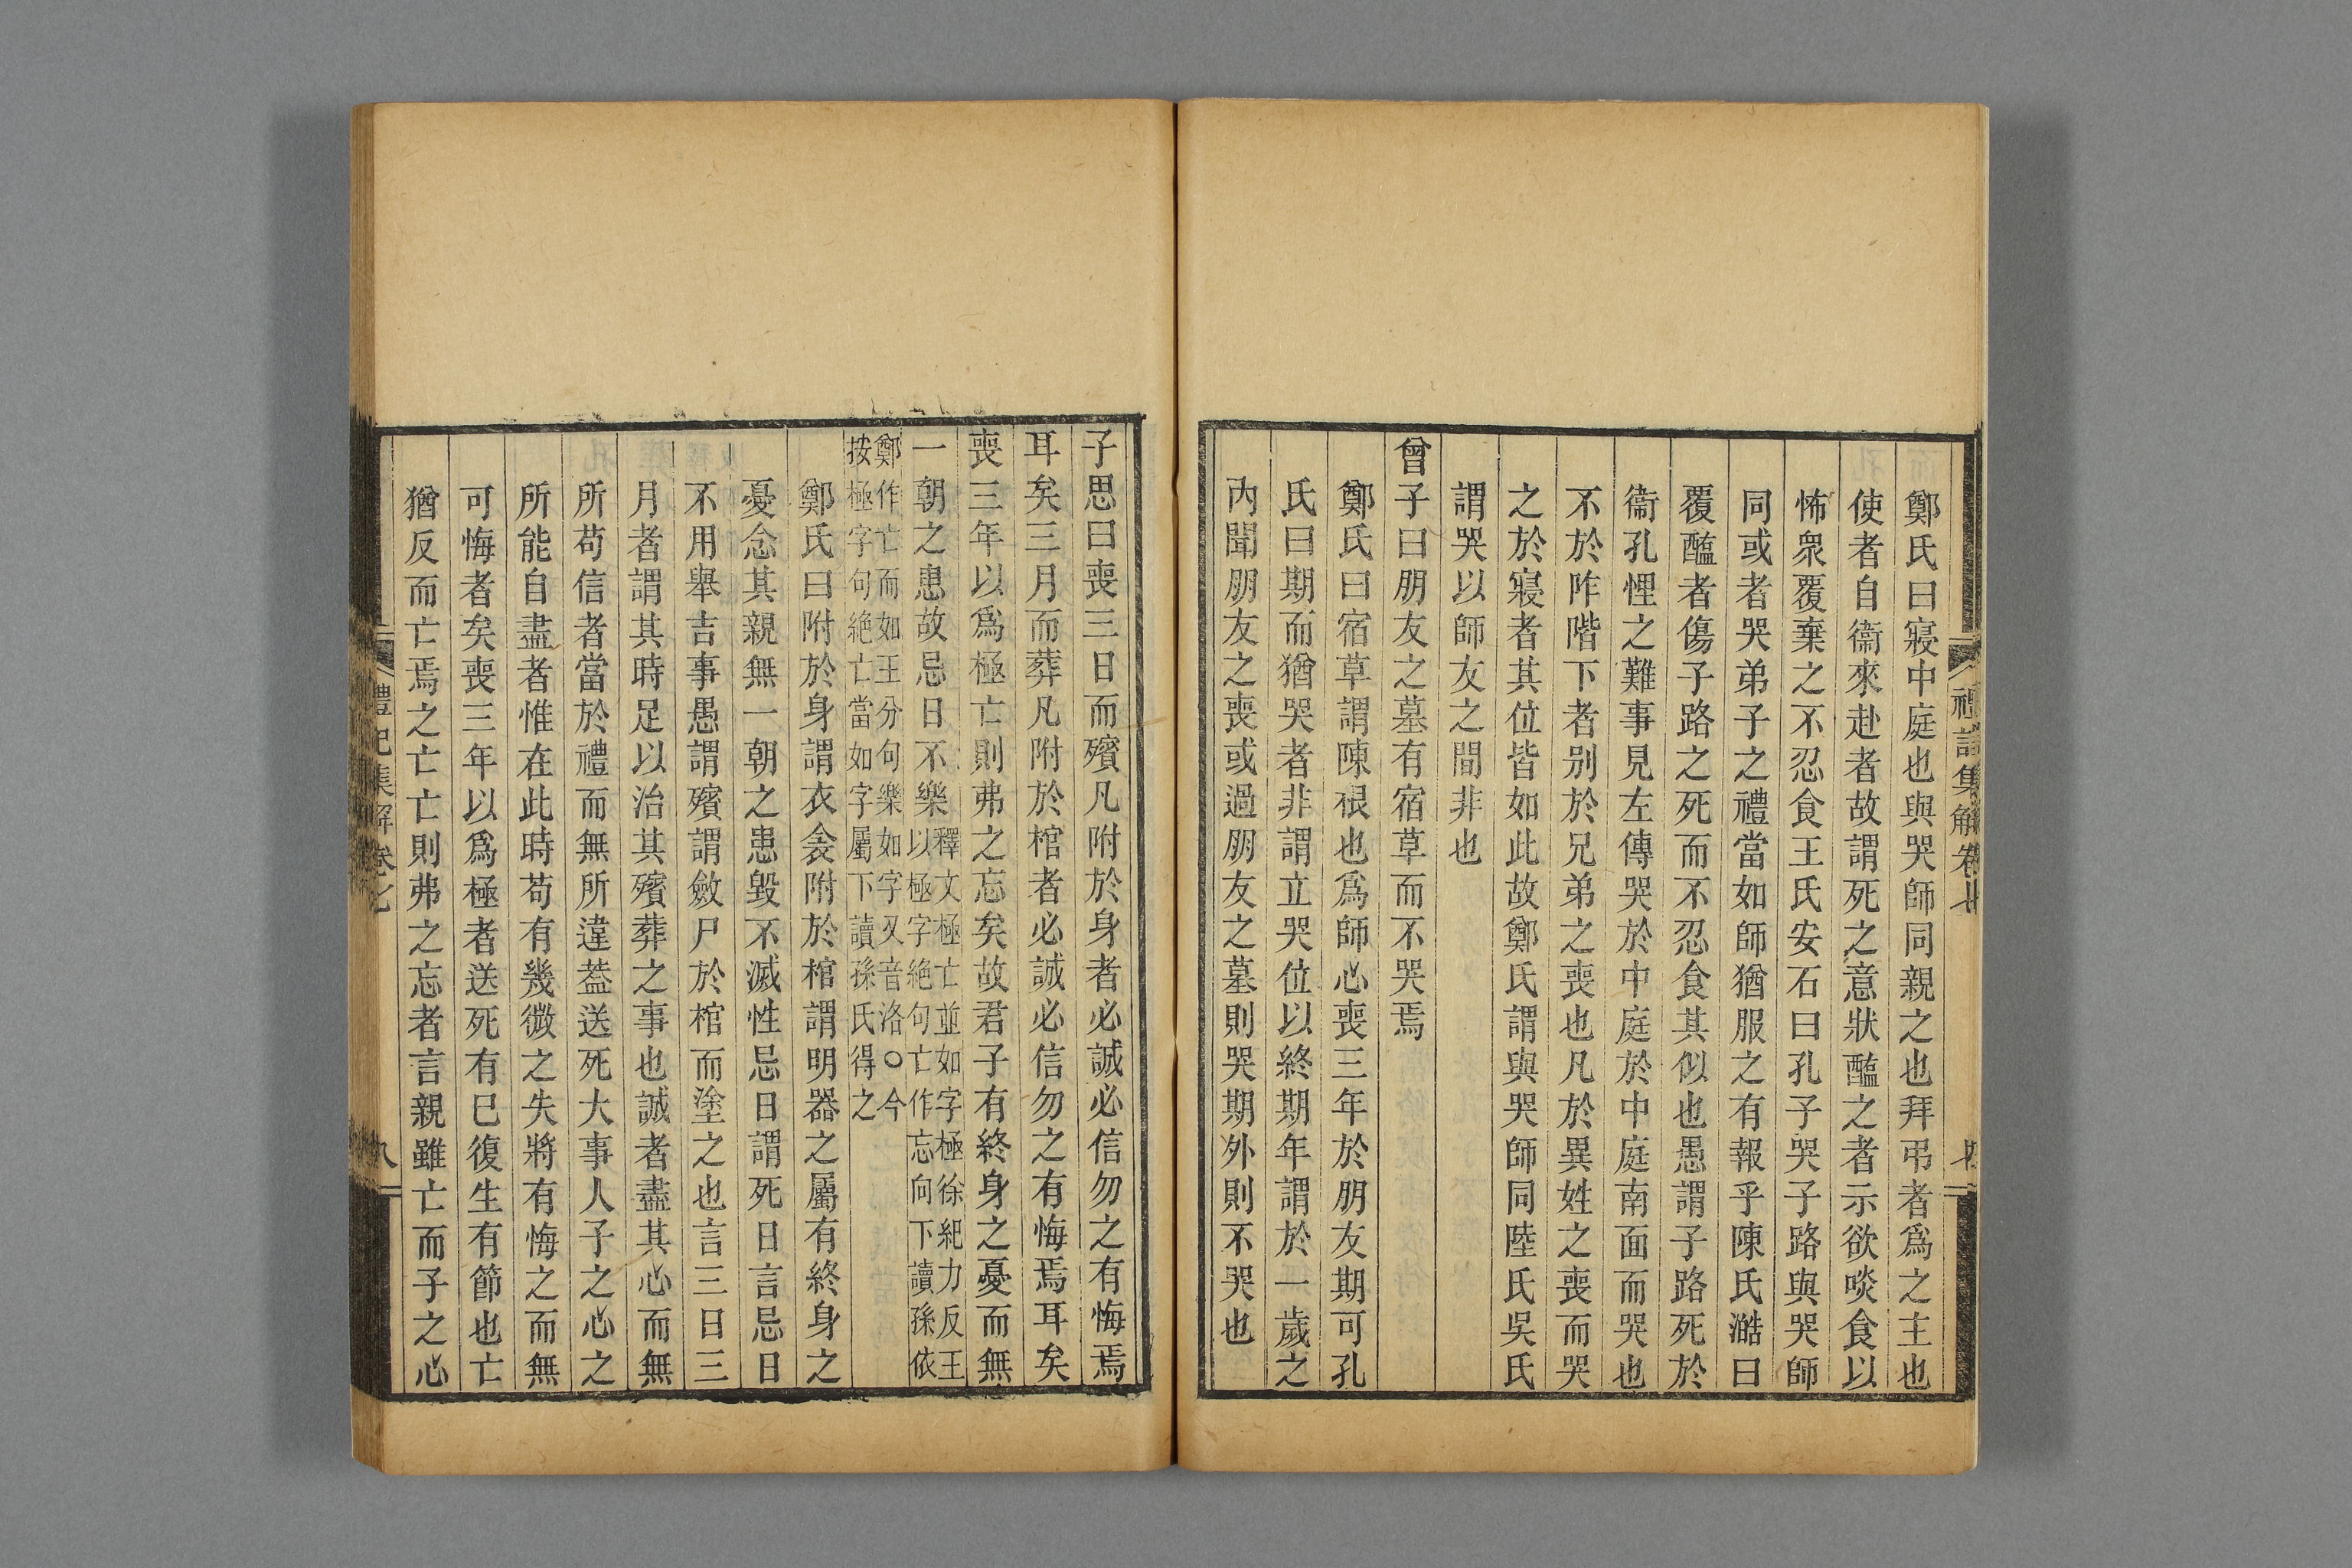 鄭氏曰寢中庭也與哭師同親之也拜弔者爲之主也
使者自衞來赴者故謂死之意狀醢之者示欲啖食以
怖衆覆棄之不忍食王氏安石曰孔子哭子路與哭師
同或者哭弟子之禮當如師猶服之有報乎陳氏澔曰
覆醢者傷子路之死而不忍食其似也愚謂子路死於
衞孔悝之難事見左傳哭於中庭於中庭南面而哭也
不於阼階下者别於兄弟之喪也凡於異姓之喪而哭
之於寢者其位皆如此故鄭氏謂與哭師同陸氏吳氏
謂哭以師友之間非也
曾子曰朋友之墓有宿草而不哭焉
鄭氏曰宿草謂陳根也爲師心喪三年於朋友期可孔
氏曰期而猶哭者非謂立哭位以終期年謂於一歲之
內聞朋友之喪或過朋友之墓則哭期外則不哭也
子思曰喪三日而殯凡附於身者必誠必信勿之有悔焉
耳矣三月而葬凡附於棺者必誠必信勿之有悔焉耳矣
喪三年以爲極亡則弗之忘矣故君子有終身之憂而無
一朝之患故忌日不樂
釋文極亡並如字極徐紀力反王
以極字絕句亡作忘向下讀孫依
鄭作亡而如王分句樂如字又音洛○今
按極字句絕亡當如字屬下讀孫氏得之
鄭氏曰附於身謂衣衾附於棺謂明器之屬有終身之
憂念其親無一朝之患毀不滅性忌日謂死日言忌日
不用舉吉事愚謂殯謂斂尸於棺而塗之也言三日三
月者謂其時足以治其殯葬之事也誠者盡其心而無
所苟信者當於禮而無所違葢送死大事人子之心之
所能自盡者惟在此時苟有幾微之失將有悔之而無
可悔者矣喪三年以爲極者送死有已復生有節也亡
猶反而亡焉之亡亡則弗之忘者言親雖亡而子之心
禮記集解卷七
八